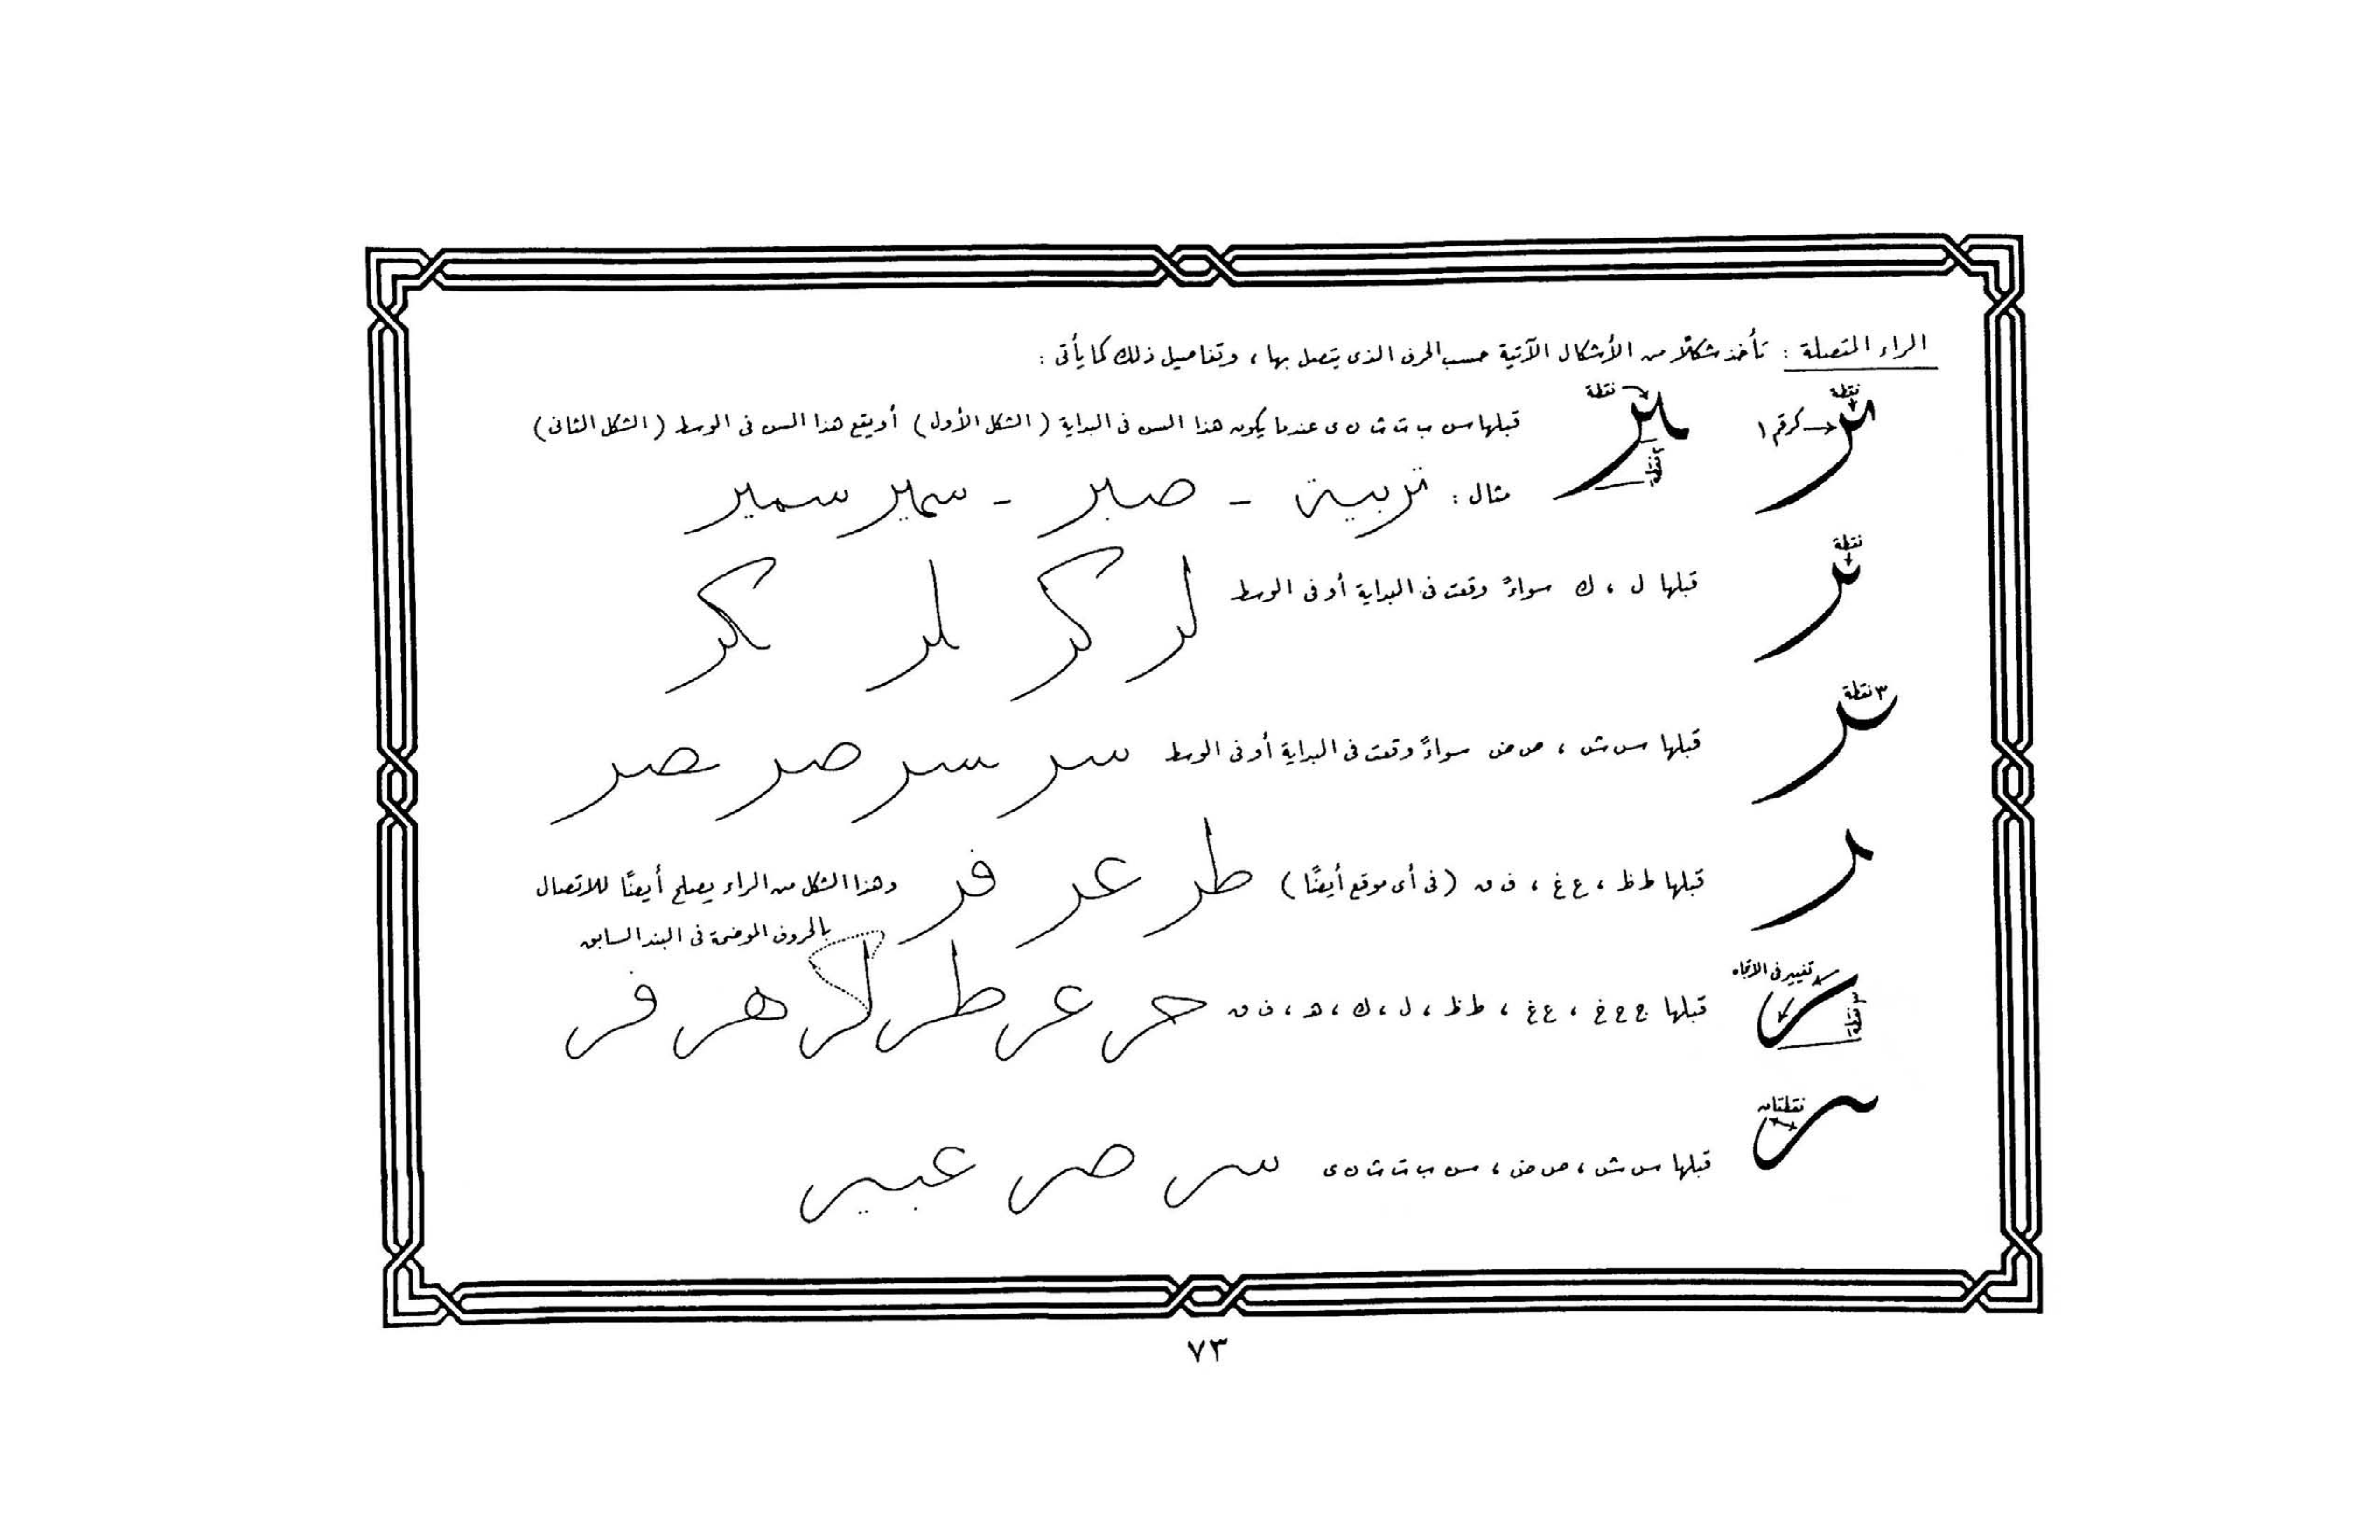 الراء المتصلة : تأخذ شكلاً من الأشكال الآتية حسب الحرف الذى يتصل بها ، وتفاصيل ذلك كما يأتى :
نقطة
كرقم ١
نقطة
نقطة
قبلها سن ب ت ث ن ى عندما يكون هذا السن فى البداية ( الشكل الأول ) أو يقع هذا السن فى الوسط ( الشكل الثانى )
مثال : تربية - صبر - سمير سمير
نقطة
قبلها ل ، ك سواءً وقعت فى البداية أو فى الوسط لر كر لر كر
٣ نقطة
قبلها س ش ، ص ض سواءً وقعت فى البداية أو فى الوسط سر سر صر صر
قبلها ط ظ ، ع غ ، ف ق ( فى أى موقع أيضًا ) طر عر فر وهذا الشكل من الراء يصلح أيضًا للاتصال
بالحروف الموضحة فى البند السابق
تغيير فى الاتجاه
٣ نقطة
قبلها ج ح خ ، ع غ ، ط ظ ، ل ، ك ، هـ ، ف ق حر عر طر كر هر فر
نقطتان
قبلها س ش ، ص ض ، سن ب ت ث ن ى سر صر عبير
٧٣